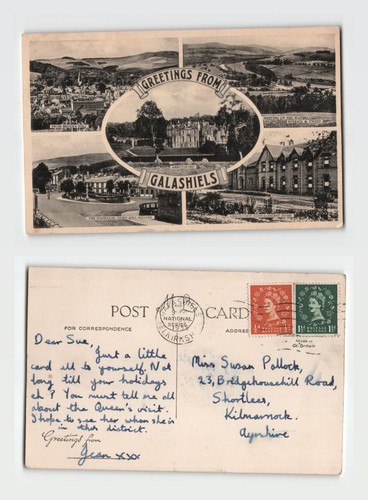 GREETINGS FROM
GALASHIELS
POST CARD
FOR CORRESPONDENCE
ADDRESS
GALASHIELS
NATIONAL
SERIES
SELKIRKSHIRE
Made in
Gt. Britain
Dear Sue,
Just a little
card all to yourself. Not
long till your holidays
eh? You must tell me all
about the Queen's visit.
I hope to see her when she is
in this district.
Greetings from
Jean xxx
Miss Susan Pollock,
23, Bridgehousehill Road,
Shortlees,
Kilmarnock.
Ayrshire